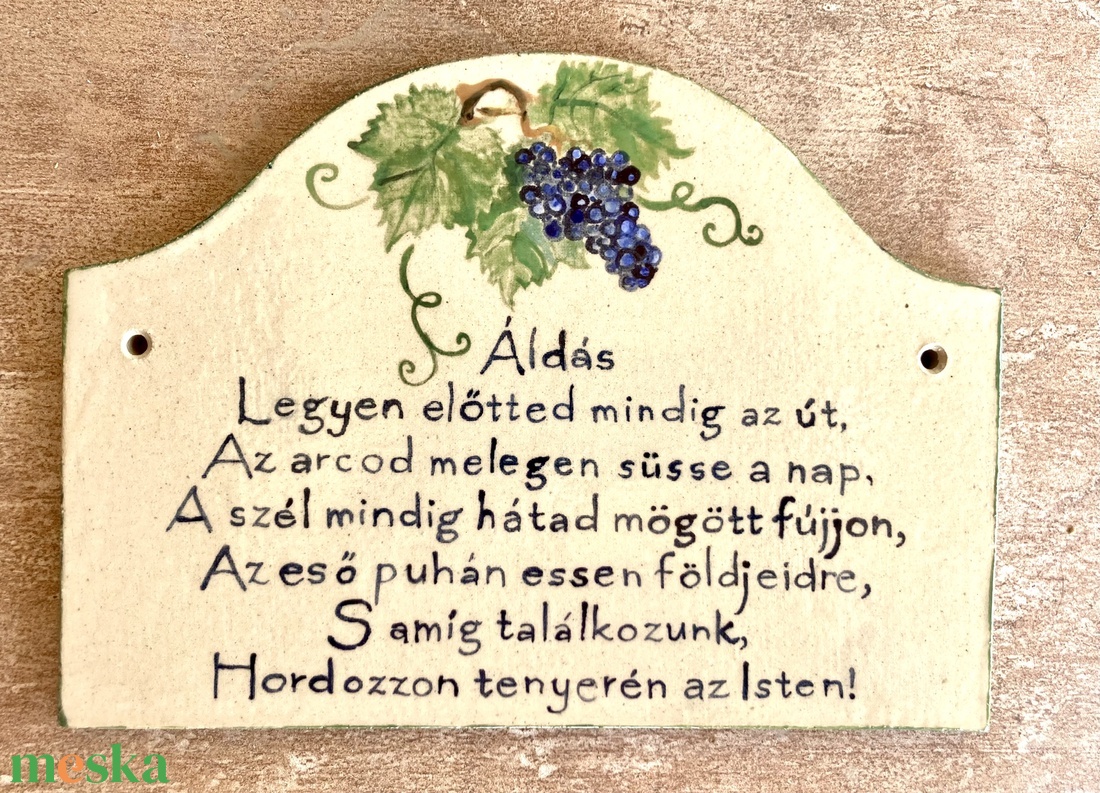 Áldás
Legyen előtted mindig az út,
Az arcod melegen süsse a nap,
A szél mindig hátad mögött fújjon,
Az eső puhán essen földjeidre,
S amíg találkozunk,
Hordozzon tenyerén az Isten!
meska